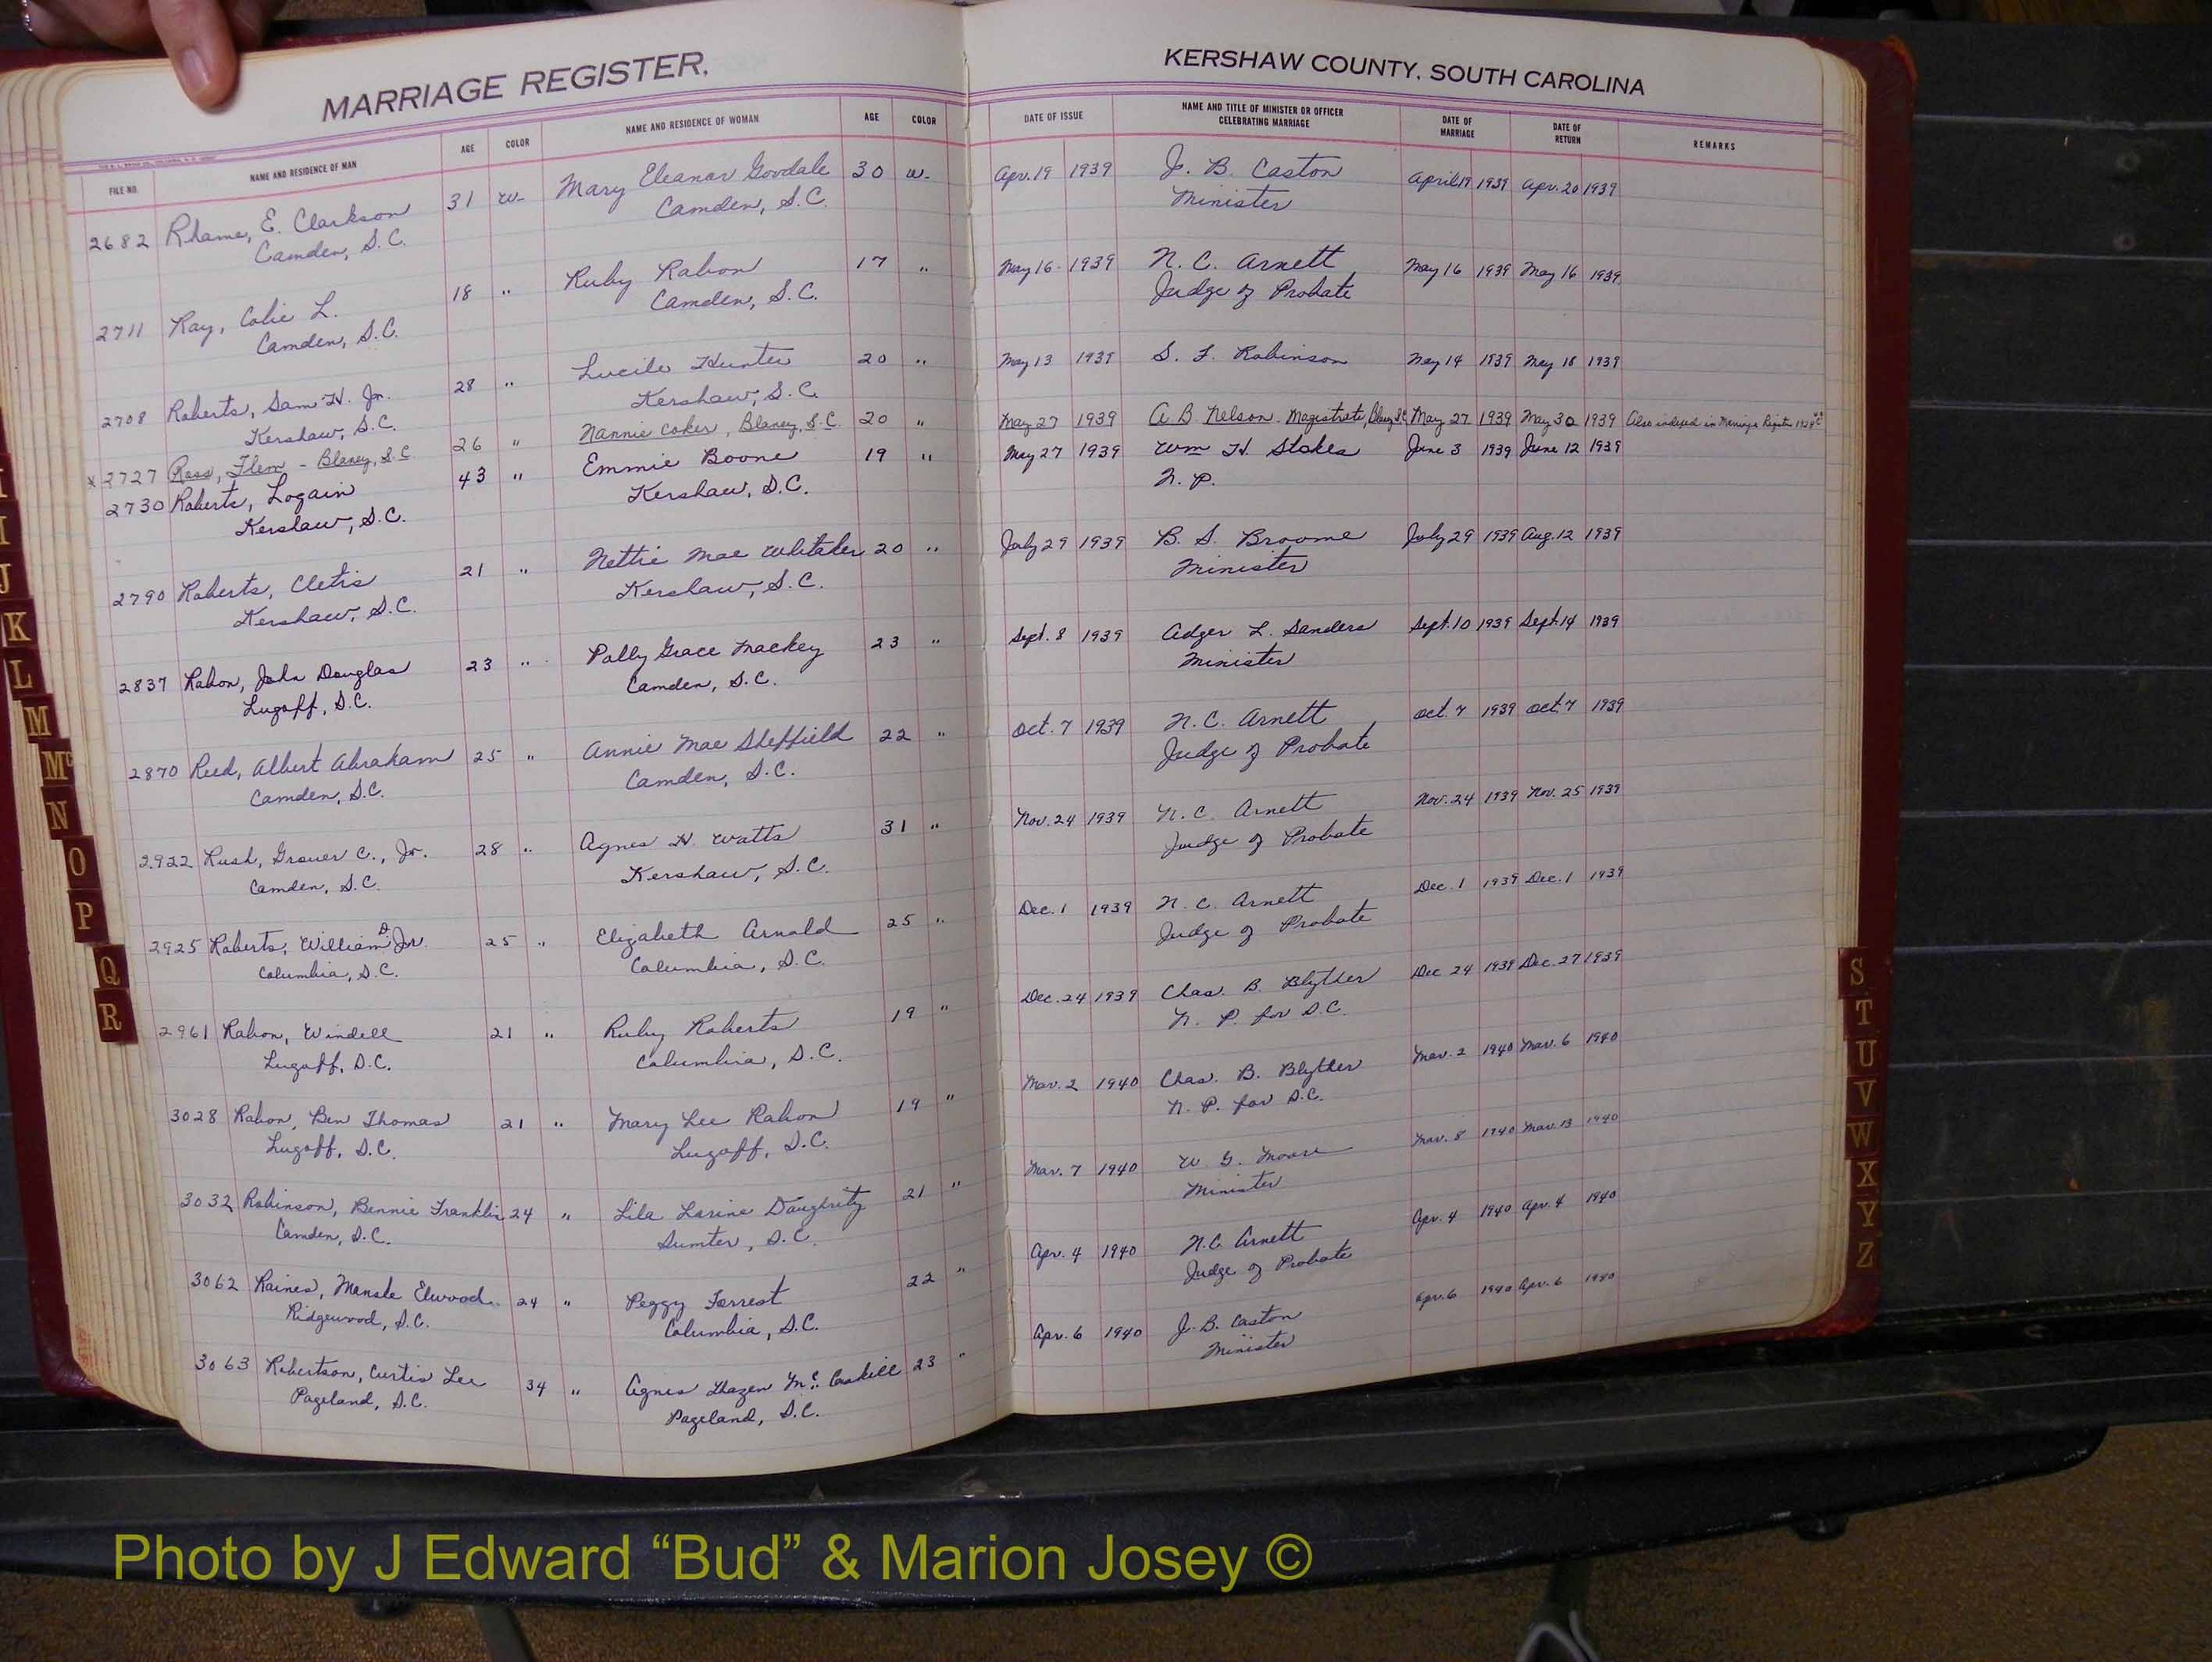 MARRIAGE REGISTER,
KERSHAW COUNTY, SOUTH CAROLINA
FILE NO. NAME AND RESIDENCE OF MAN AGE COLOR NAME AND RESIDENCE OF WOMAN AGE COLOR DATE OF ISSUE NAME AND TITLE OF MINISTER OR OFFICER CELEBRATING MARRIAGE DATE OF MARRIAGE DATE OF RETURN REMARKS
2682 Rhame, E. Clarkson 31 w- Mary Eleanor Goodale 30 w- Apr. 19 1939 J. B. Caston April 19 1939 Apr. 20 1939
Camden, S.C. Camden, S.C. Minister
2711 Ray, Colie L. 18 " Ruby Rabon 17 " May 16 1939 N. C. Arnett May 16 1939 May 16 1939
Camden, S.C. Camden, S.C. Judge of Probate
2708 Roberts, Sam H. Jr. 28 " Lucile Hunter 20 " May 13 1939 S. F. Robinson May 14 1939 May 18 1939
Kershaw, S.C. Kershaw, S.C.
x 2727 Ross, Flem - Blaney, S.C 26 " Nannie Coker, Blaney, S.C. 20 " May 27 1939 A. B. Nelson. Magistrate, Blaney S.C. May 27 1939 May 30 1939 Also indexed in Marriage Register
2730 Roberts, Logain 43 " Emmie Boone 19 " May 27 1939 Wm H. Stokes June 3 1939 June 12 1939
Kershaw, S.C. Kershaw, S.C. N. P.
2790 Roberts, Cletis 21 " Nettie Mae Whitaker 20 " July 29 1939 B. S. Broome July 29 1939 Aug. 12 1939
Kershaw, S.C. Kershaw, S.C. Minister
2837 Rabon, John Douglas 23 " Polly Grace Mackey 23 " Sept. 8 1939 Adger L. Sanders Sept. 10 1939 Sept. 14 1939
Lugoff, S.C. Camden, S.C. Minister
2870 Reed, Albert Abraham 25 " Annie Mae Sheffield 22 " Oct. 7 1939 N. C. Arnett Oct. 7 1939 Oct. 7 1939
Camden, S.C. Camden, S.C. Judge of Probate
2922 Rush, Grover C., Jr. 28 " Agnes H. Watts 31 " Nov. 24 1939 N. C. Arnett Nov. 24 1939 Nov. 25 1939
Camden, S.C. Kershaw, S.C. Judge of Probate
2925 Roberts, William D. Jr. 25 " Elizabeth Arnold 25 " Dec. 1 1939 N. C. Arnett Dec. 1 1939 Dec. 1 1939
Columbia, S.C. Columbia, S.C. Judge of Probate
2961 Rabon, Windell 21 " Ruby Roberts 19 " Dec. 24 1939 Chas. B. Blyther Dec 24 1939 Dec. 27 1939
Lugoff, S.C. Columbia, S.C. N. P. for S.C.
3028 Rabon, Ben Thomas 21 " Mary Lee Rabon 19 " Mar. 2 1940 Chas. B. Blyther Mar. 2 1940 Mar. 6 1940
Lugoff, S.C. Lugoff, S.C. N. P. for S.C.
3032 Robinson, Bennie Franklin 24 " Lila Larine Daughrity 21 " Mar. 7 1940 W. G. Moore Mar. 8 1940 Mar. 13 1940
Camden, S.C. Sumter, S.C. Minister
3062 Raines, Mansle Elwood 24 " Peggy Forrest 22 " Apr. 4 1940 N.C. Arnett Apr. 4 1940 Apr. 4 1940
Ridgewood, S.C. Columbia, S.C. Judge of Probate
3063 Robertson, Curtis Lee 34 " Agnes Hazen McCaskill 23 " Apr. 6 1940 J. B. Caston Apr. 6 1940 Apr. 6 1940
Pageland, S.C. Pageland, S.C. Minister
J
K
L
M
Mc
N
O
P
Q
R
S
T
U
V
W
X
Y
Z
Photo by J Edward “Bud” & Marion Josey ©